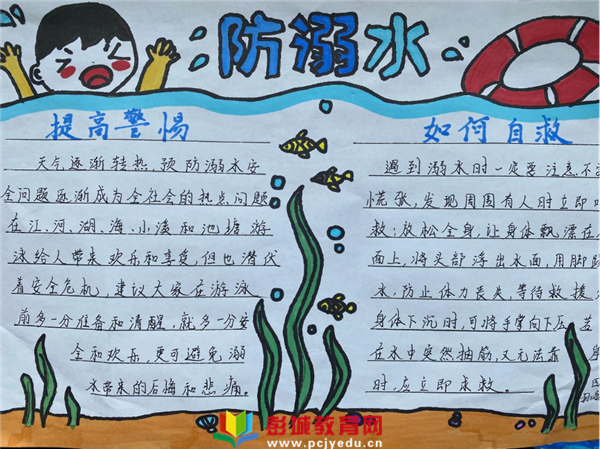 防溺水
提高警惕
天气逐渐转热,预防溺水安
全问题逐渐成为全社会的热点问题
在江、河、湖、海、小溪和池塘游
泳给人带来欢乐和享受,但也潜伏
着安全危机,建议大家在游泳
前多一分准备和清醒,就多一分安
全和欢乐,更可避免溺
水带来的后悔和悲痛。
如何自救
遇到溺水时一定要注意不
慌张,发现周围有人时立即
救;放松全身,让身体飘漂在
面上,将头部浮出水面,用脚
水,防止体力丧失,等待救援
身体下沉时,可将手掌向下压
在水中突然抽筋,又无法靠岸
时,应立即求救。
彭城教育网
www.pcjyedu.cn